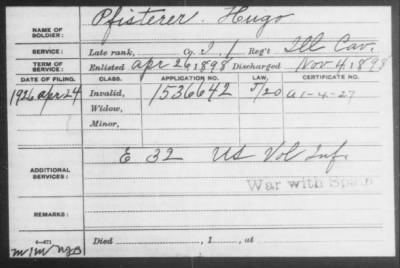 NAME OF SOLDIER: Pfisterer, Hugo
SERVICE: Late rank, Co. I, 1 Reg't Ill Cav.
TERM OF SERVICE: Enlisted Apr 26, 1898 Discharged Nov 4, 1898
DATE OF FILING. CLASS. APPLICATION NO. LAW. CERTIFICATE NO.
1926 Apr 24 Invalid, 1536642 5/20 a1-4-27
Widow,
Minor,
ADDITIONAL SERVICES: E 32 US Vol Inf.
War with Spain
REMARKS:
Died , 1 , at